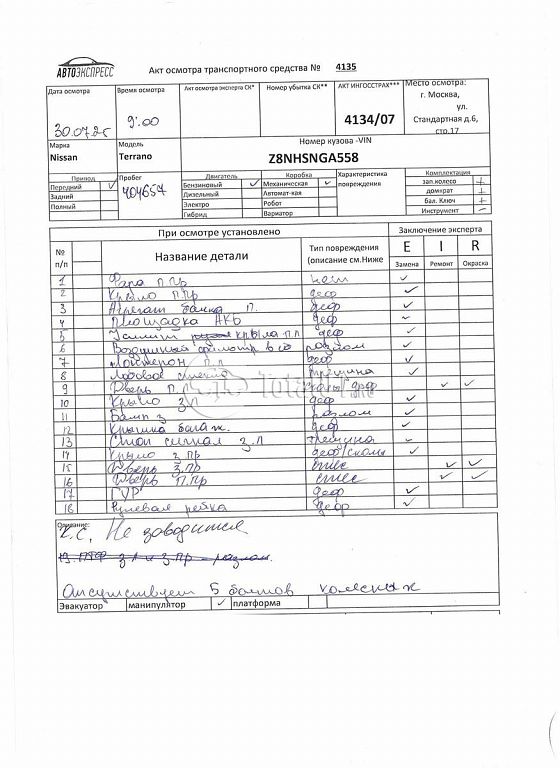 АВТОЭКСПРЕСС
Акт осмотра транспортного средства № 4135
Дата осмотра Время осмотра Акт осмотра эксперта СК* Номер убытка СК** АКТ ИНГОССТРАХ*** Место осмотра:
г. Москва,
ул.
30.07.25 9:00 4134/07 Стандартная д.6,
стр.17
Марка Модель Номер кузова -VIN
Nissan Terrano Z8NHSNGA558
Привод Пробег Двигатель Коробка Характеристика повреждения Комплектация
Передний 404657 Бензиновый Механическая зап.колесо +
Задний Дизельный Автомат-кая домкрат +
Полный Электро Робот бал. Ключ +
Гибрид Вариатор Инструмент -
При осмотре установлено Заключение эксперта
№ п/п Название детали Тип повреждения (описание см.Ниже E I R
Замена Ремонт Окраска
1 Фара П.Пр
2 Крыло П.Пр деф
3 Агрегат бачка П. деф
4 Площадка АКБ деф
5 крыла п.л деф
6 Воздушный фильтр в сб разлом
7 п.л деф
8 Лобовое стекло трещина
9 Дверь П. деф
10 Крыло з. деф
11 Бамп з разлом
12 Крышка багаж. деф
13 Стоп сигнал з.л трещина
14 Крыло з.пр деф/сколы
15 Дверь з.пр
16 Дверь П.Пр
17 ГУР деф
18 Рулевая рейка деф
Описание:
К.С. Не заводится
13. ПТФ з.л и з.Пр - разлом.
Отсутствует 5 болтов колесных
Эвакуатор манипулятор платформа